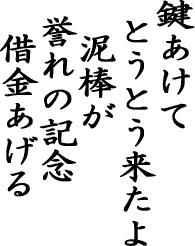 鍵あけて
とうとう来たよ
泥棒が
誉れの記念
借金あげる